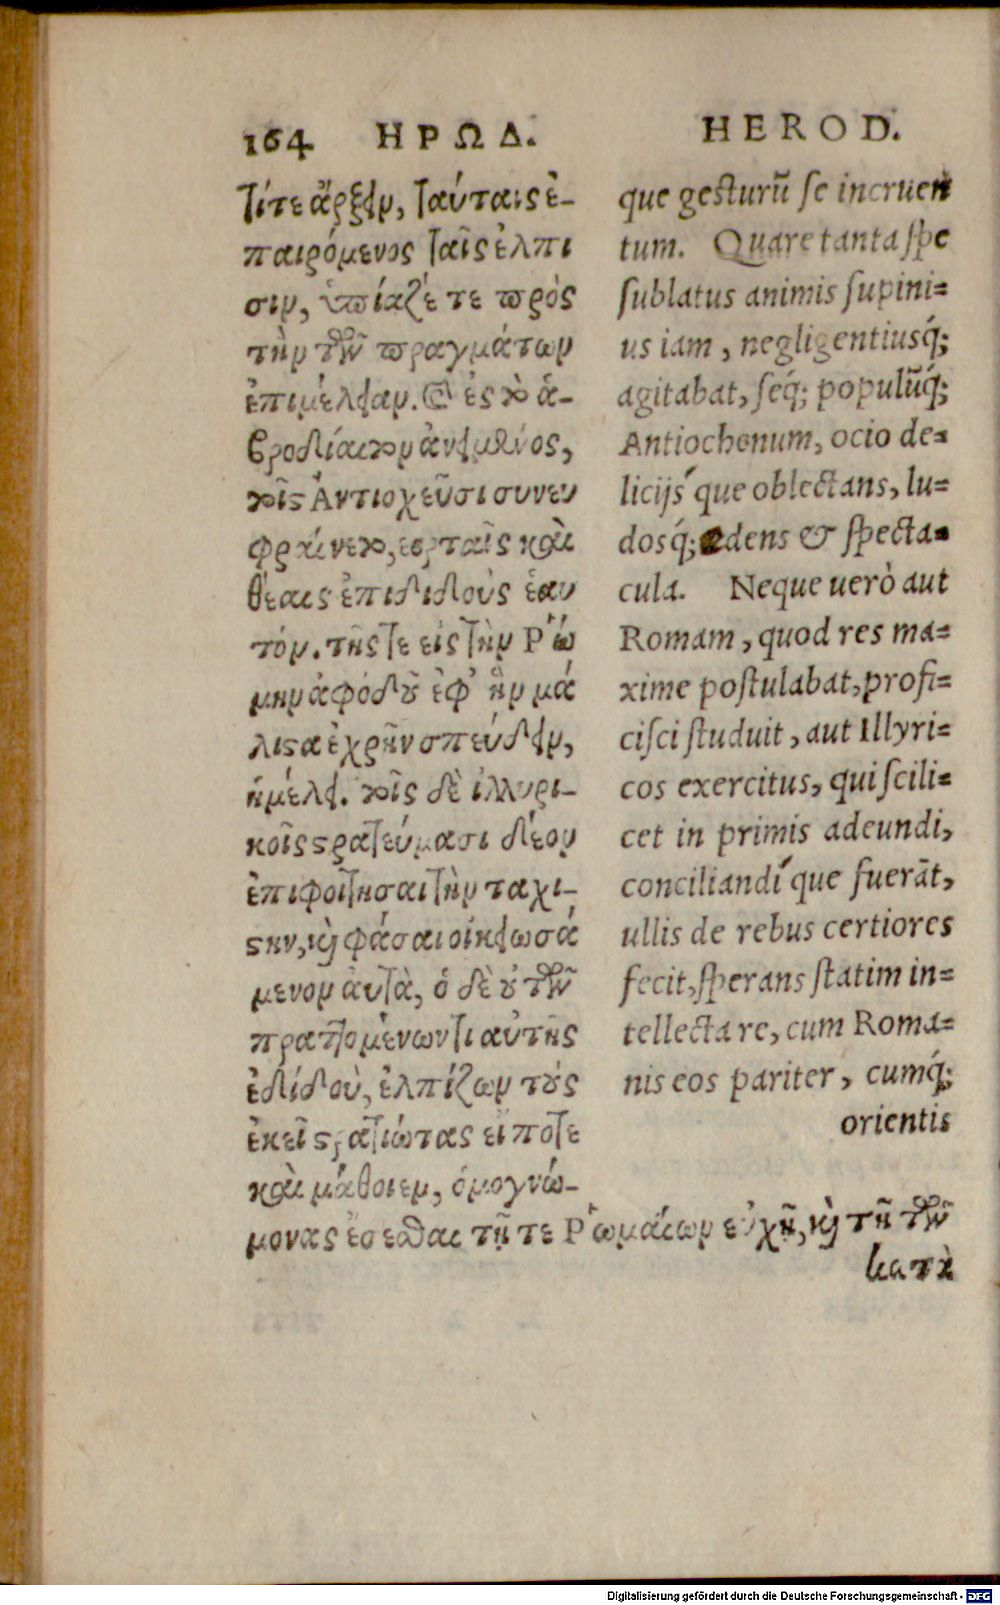 164 ΗΡΩΔ.
τίτε ἄρξειν, ταύταις ἐ-
παιρόμενος ταῖς ἐλπί
σιν, ὑπτίαζέ τε πρὸς
τὴν τῶν πραγμάτων
ἐπιμέλειαν. καὶ ἐς τὸ ἁ-
βροδίαιτον ἀνειμένος,
τοῖς Ἀντιοχεῦσι συνευ
φραίνετο, ἑορταῖς καὶ
θέαις ἐπιδιδοὺς ἑαυ
τόν. τῆς τε εἰς τὴν Ῥώ
μην ἀφόδου ἐφ' ἣν μά
λιστα ἐχρῆν σπεύδειν,
ἠμέλει. τοῖς δὲ ἰλλυρι-
κοῖς στρατεύμασι δέον
ἐπιφοιτῆσαι τὴν ταχί-
στην, καὶ φθάσαι οἰκειωσά
μενον αὐτὰ, ὁ δὲ οὐ τῶν
πραττομένων τι αὐτῆς
ἐδίδου, ἐλπίζων τοὺς
ἐκεῖ στρατιώτας εἴ ποτε
καὶ μάθοιεν, ὁμογνώ-
μονας ἔσεσθαι τῇ τε Ῥωμαίων εὐχῇ, καὶ τῇ τῶν
κατὰ
HEROD.
que gesturū se incruen
tum. Quare tanta spe
sublatus animis supini=
us iam, negligentiusq́;
agitabat, seq́; populūq́;
Antiochenum, ocio de=
licijs´que oblectans, lu=
dosq́; edens & specta=
cula. Neque uerò aut
Romam, quod res ma=
xime postulabat, profi=
cisci studuit, aut Illyri=
cos exercitus, qui scili=
cet in primis adeundi,
conciliandi´que fuerāt,
ullis de rebus certiores
fecit, sperans statim in=
tellecta re, cum Roma=
nis eos pariter, cumq́;
orientis
Digitalisierung gefördert durch die Deutsche Forschungsgemeinschaft - DFG